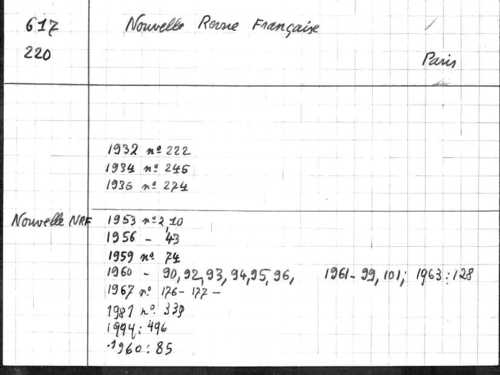 617 Nouvelle Revue Française
220 Paris
1932 nº 222
1934 nº 245
1936 nº 274
Nouvelle NRF 1953 nº 2,10
1956 - 43
1959 nº 74
1960 - 90, 92, 93, 94, 95, 96, 1961-99, 101; 1963:128
1967 nº 176- 177-
1981 nº 339
1994: 496
1960: 85